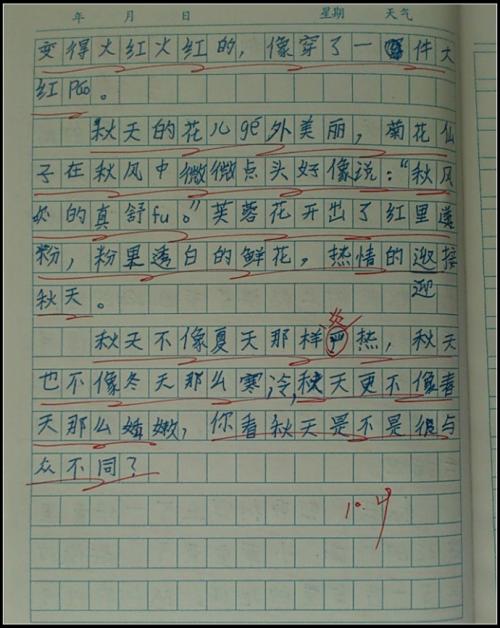 年 月 日 星期 天气
变得火红火红的，像穿了一件大
红pao。
秋天的花儿gé外美丽，菊花仙
子在秋风中微微点头好像说：“秋风
的真舒fu。”芙蓉花开出了红里透
粉，粉里透白的鲜花，热情的迎接
迎
秋天。
炎
秋天不像夏天那样严热，秋天
也不像冬天那么寒冷，秋天更不像春
天那么娇嫩，你看秋天是不是很与
众不同？
10.19